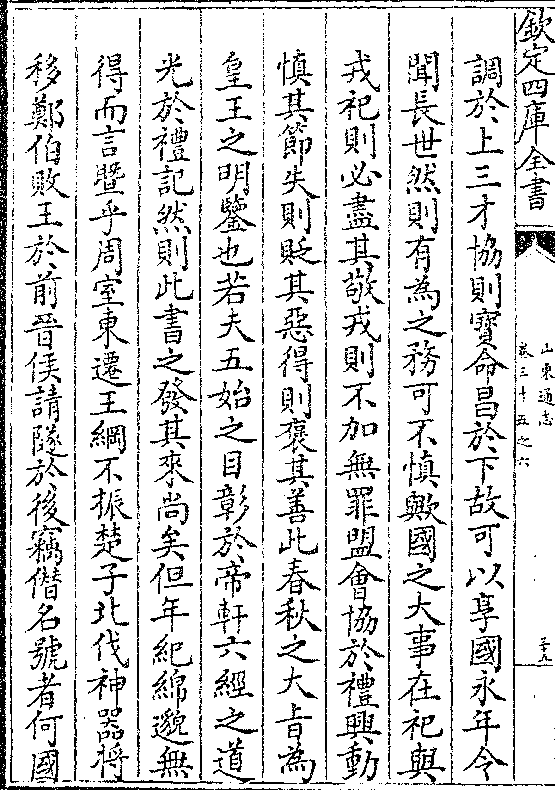 欽定四庫全書
山東通志
卷三十五之六
調於上三才協則寳命昌於下故可以享國永年令
聞長世然則有為之務可不慎歟國之大事在祀與
戎祀則必盡其敬戎則不加無罪盟會協於禮興動
慎其節失則貶其惡得則褒其善此春秋之大㫖為
皇王之明鑒也若夫五始之目彰於帝軒六經之道
光於禮記然則此書之發其來尚矣但年紀綿邈無
得而言暨乎周室東遷王綱不振楚子北伐神器将
移鄭伯敗王於前晉侯請隧於後竊僭名號者何國